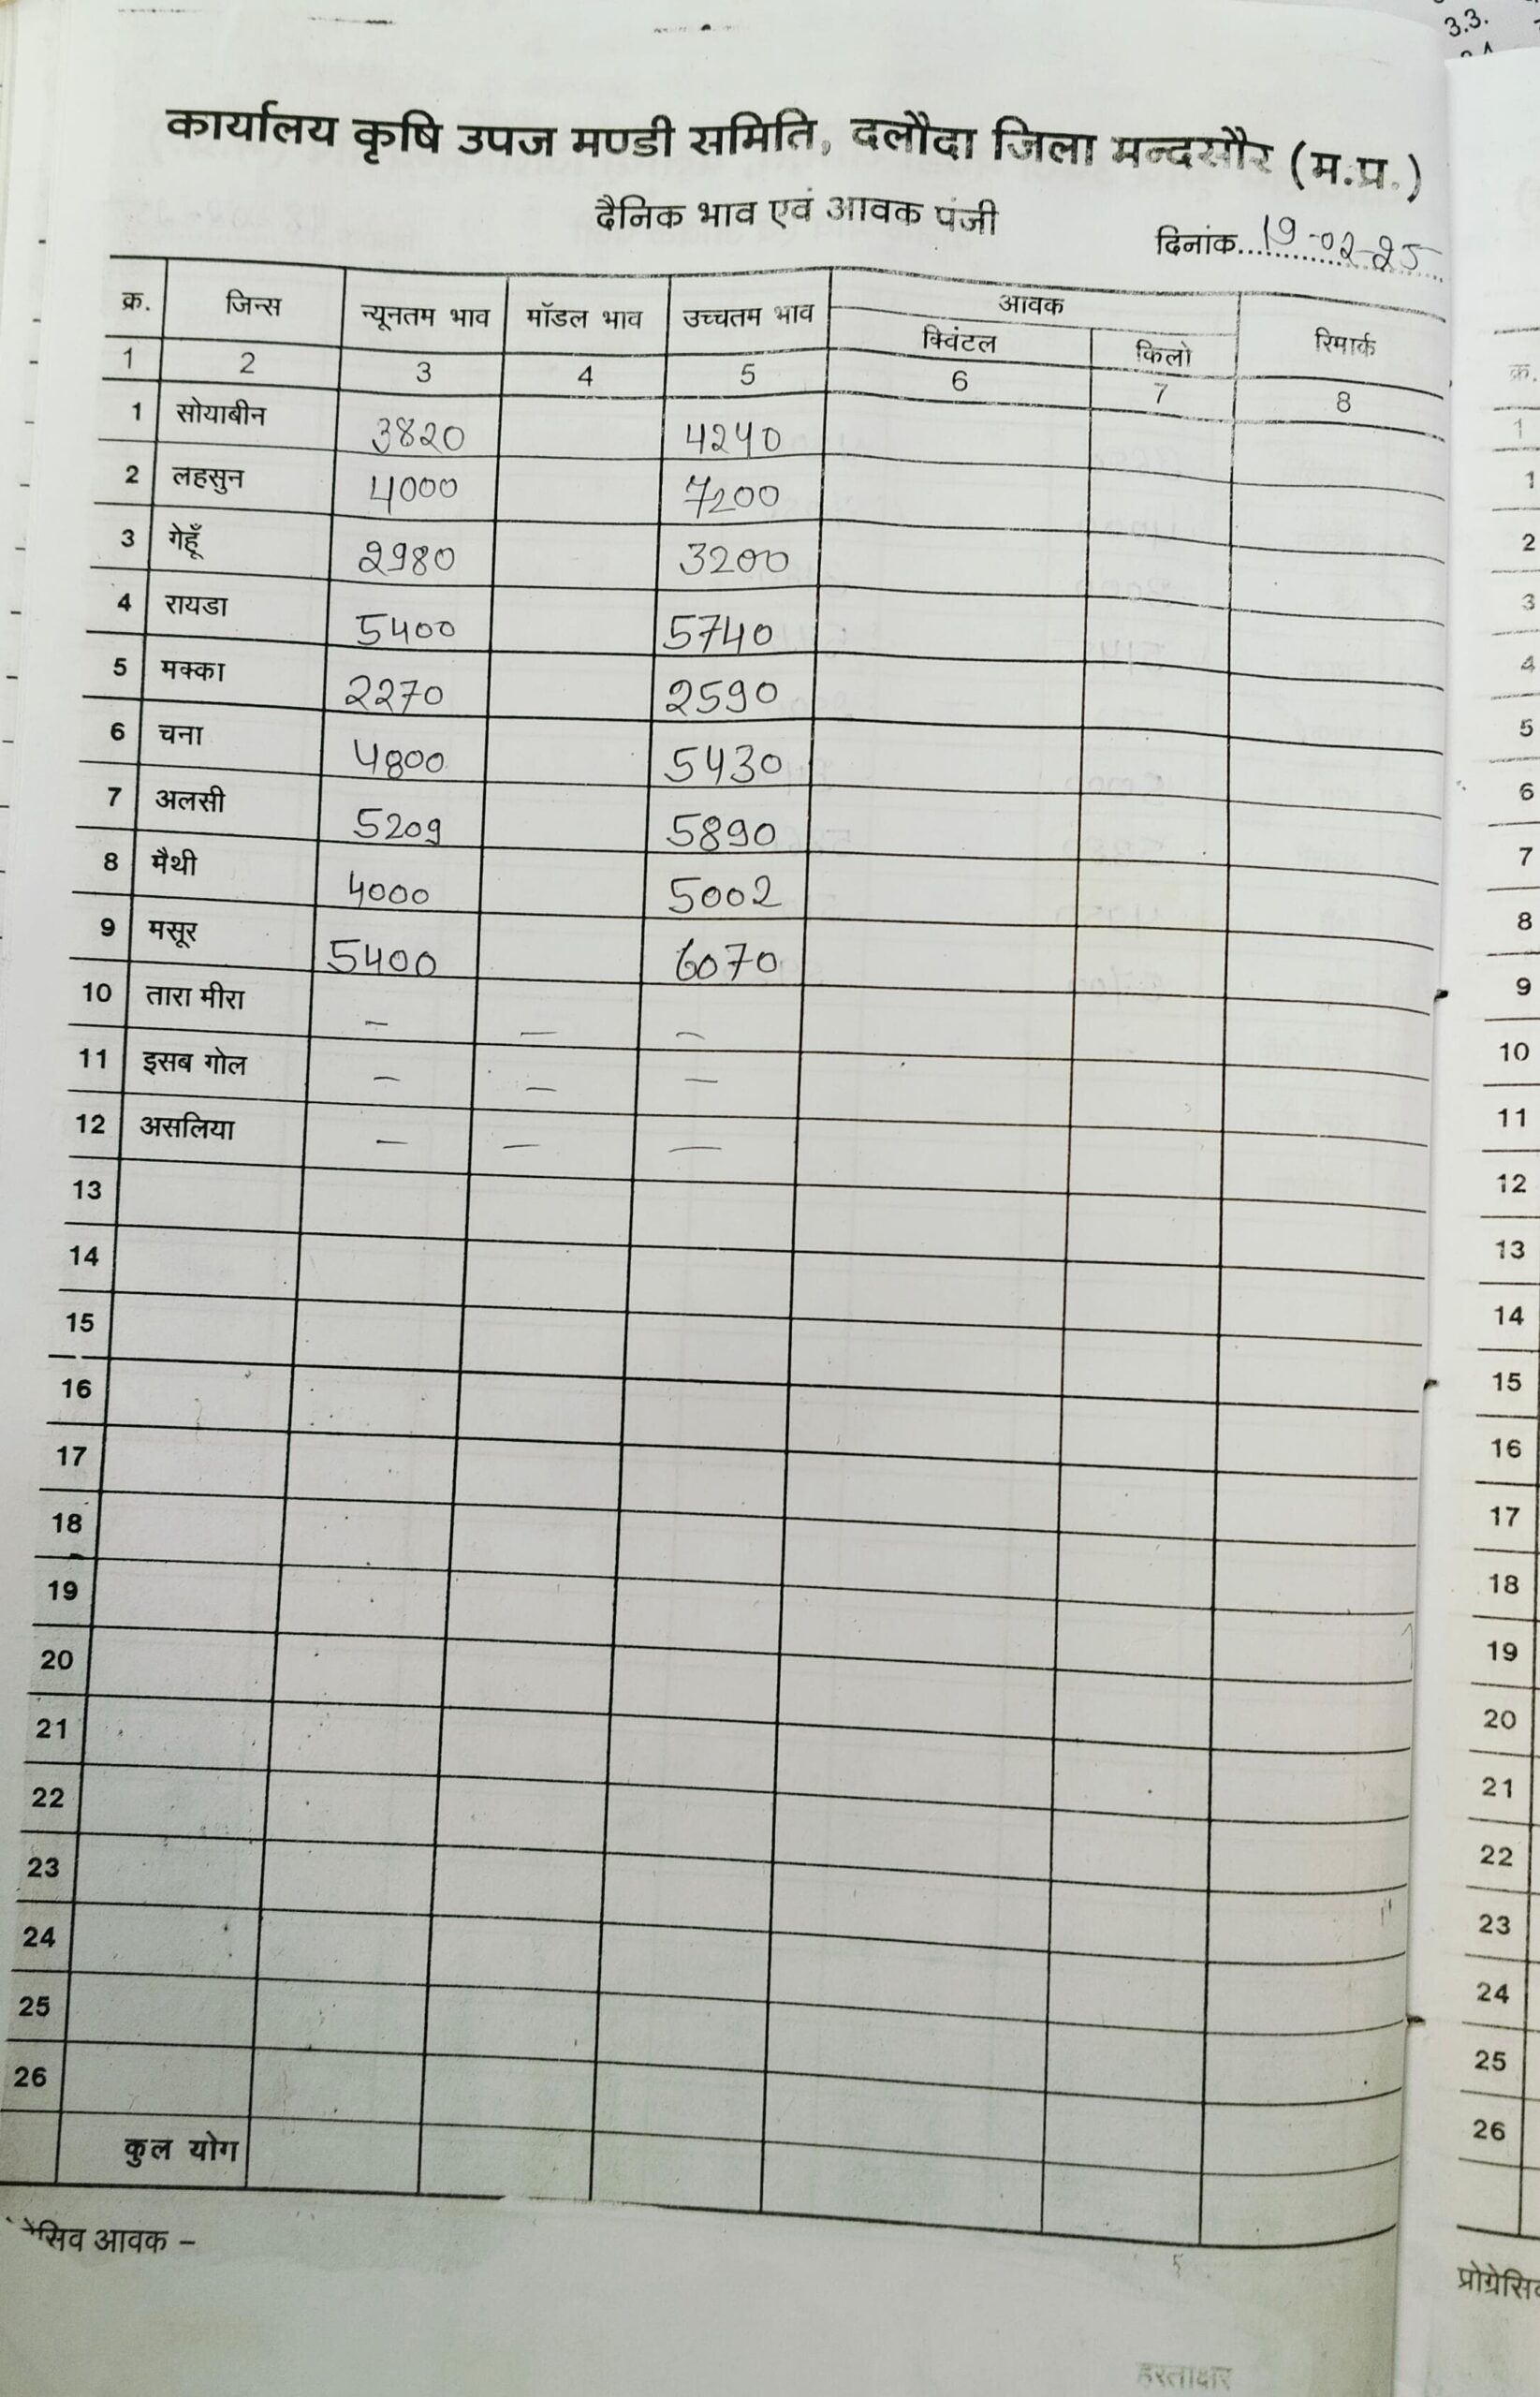 3.3.
कार्यालय कृषि उपज मण्डी समिति, दलौदा जिला मन्दसौर (म.प्र.)
दैनिक भाव एवं आवक पंजी
दिनांक 19-02-25
क्र. जिन्स न्यूनतम भाव मॉडल भाव उच्चतम भाव आवक रिमार्क
क्विंटल किलो
1 2 3 4 5 6 7 8
1 सोयाबीन 3820 4240
2 लहसुन 4000 7200
3 गेहूँ 2980 3200
4 रायडा 5400 5740
5 मक्का 2270 2590
6 चना 4800 5430
7 अलसी 5209 5890
8 मैथी 4000 5002
9 मसूर 5400 6070
10 तारा मीरा - - -
11 इसब गोल - - -
12 असलिया - - -
13
14
15
16
17
18
19
20
21
22
23
24
25
26
कुल योग
सिव आवक -
हस्ताक्षर
क्र.
1
1
2
3
4
5
6
7
8
9
10
11
12
13
14
15
16
17
18
19
20
21
22
23
24
25
26